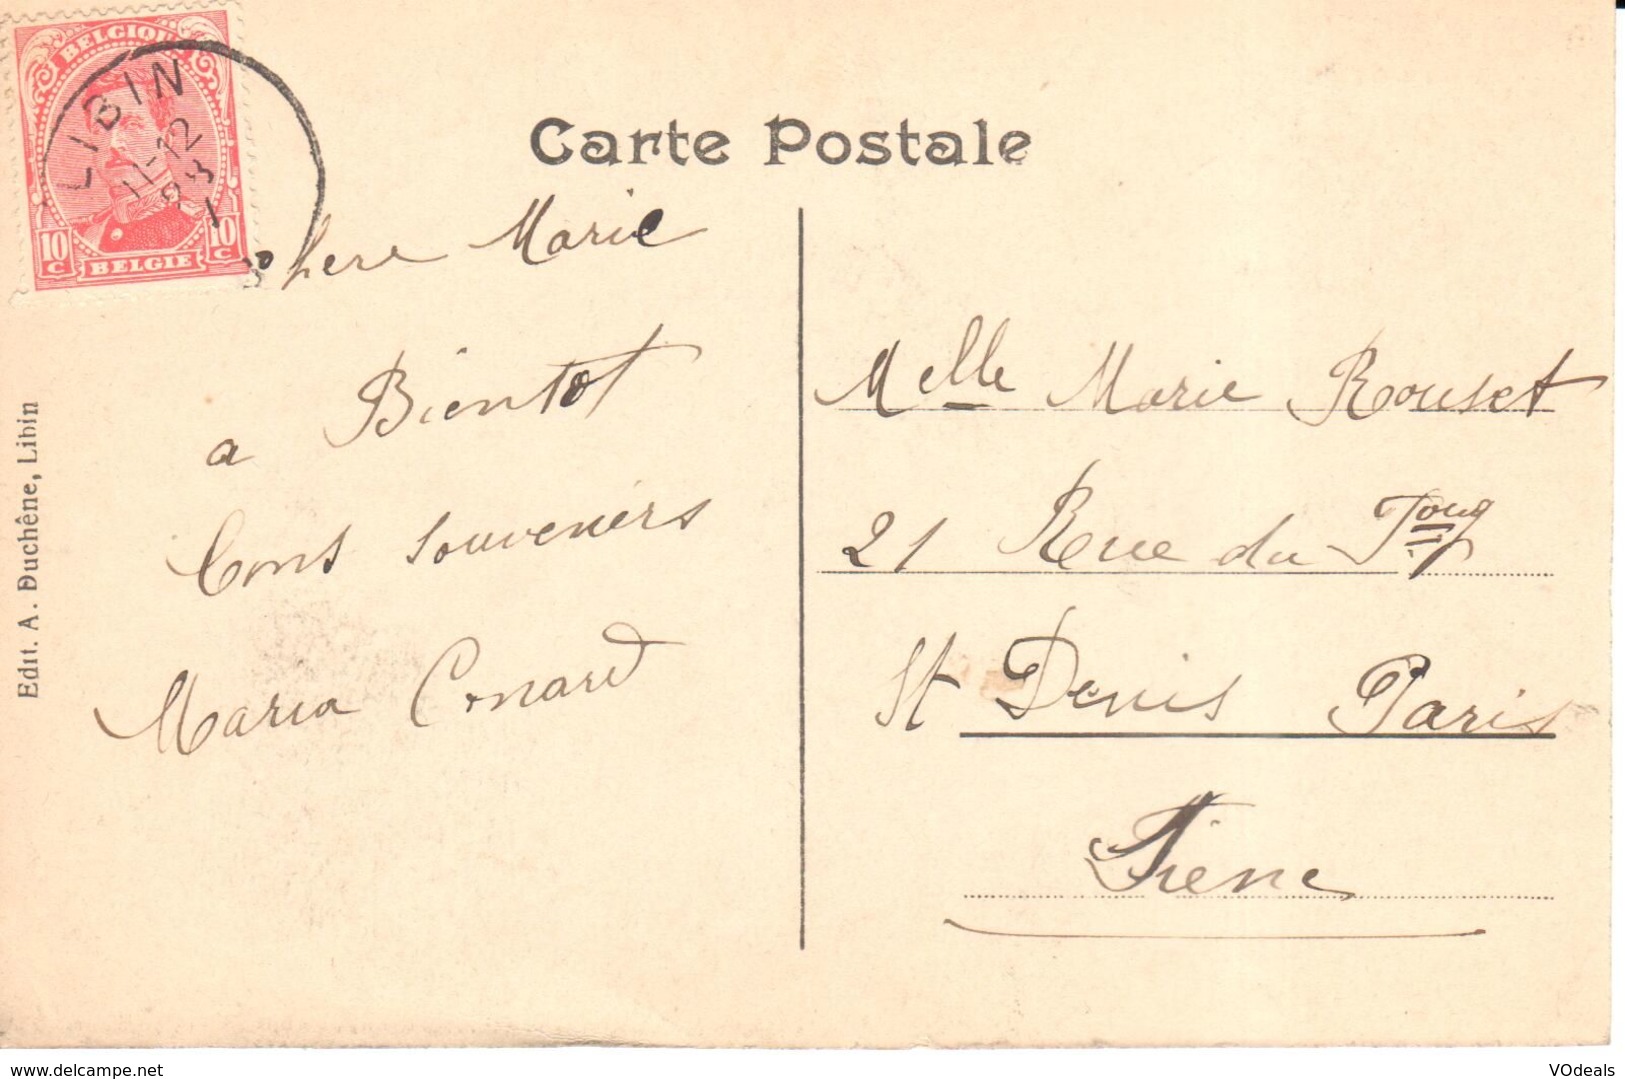 BELGIQUE
LIBIN
11-12
10 C
10 C
BELGIE
Carte Postale
Chere Marie
a Bientot
Bons souveniers
Maria Conard
Edit. A. Duchêne, Libin
Melle Marie Rouset
21 Rue du Foug
St Denis Paris
delcampe.net
VOdeals